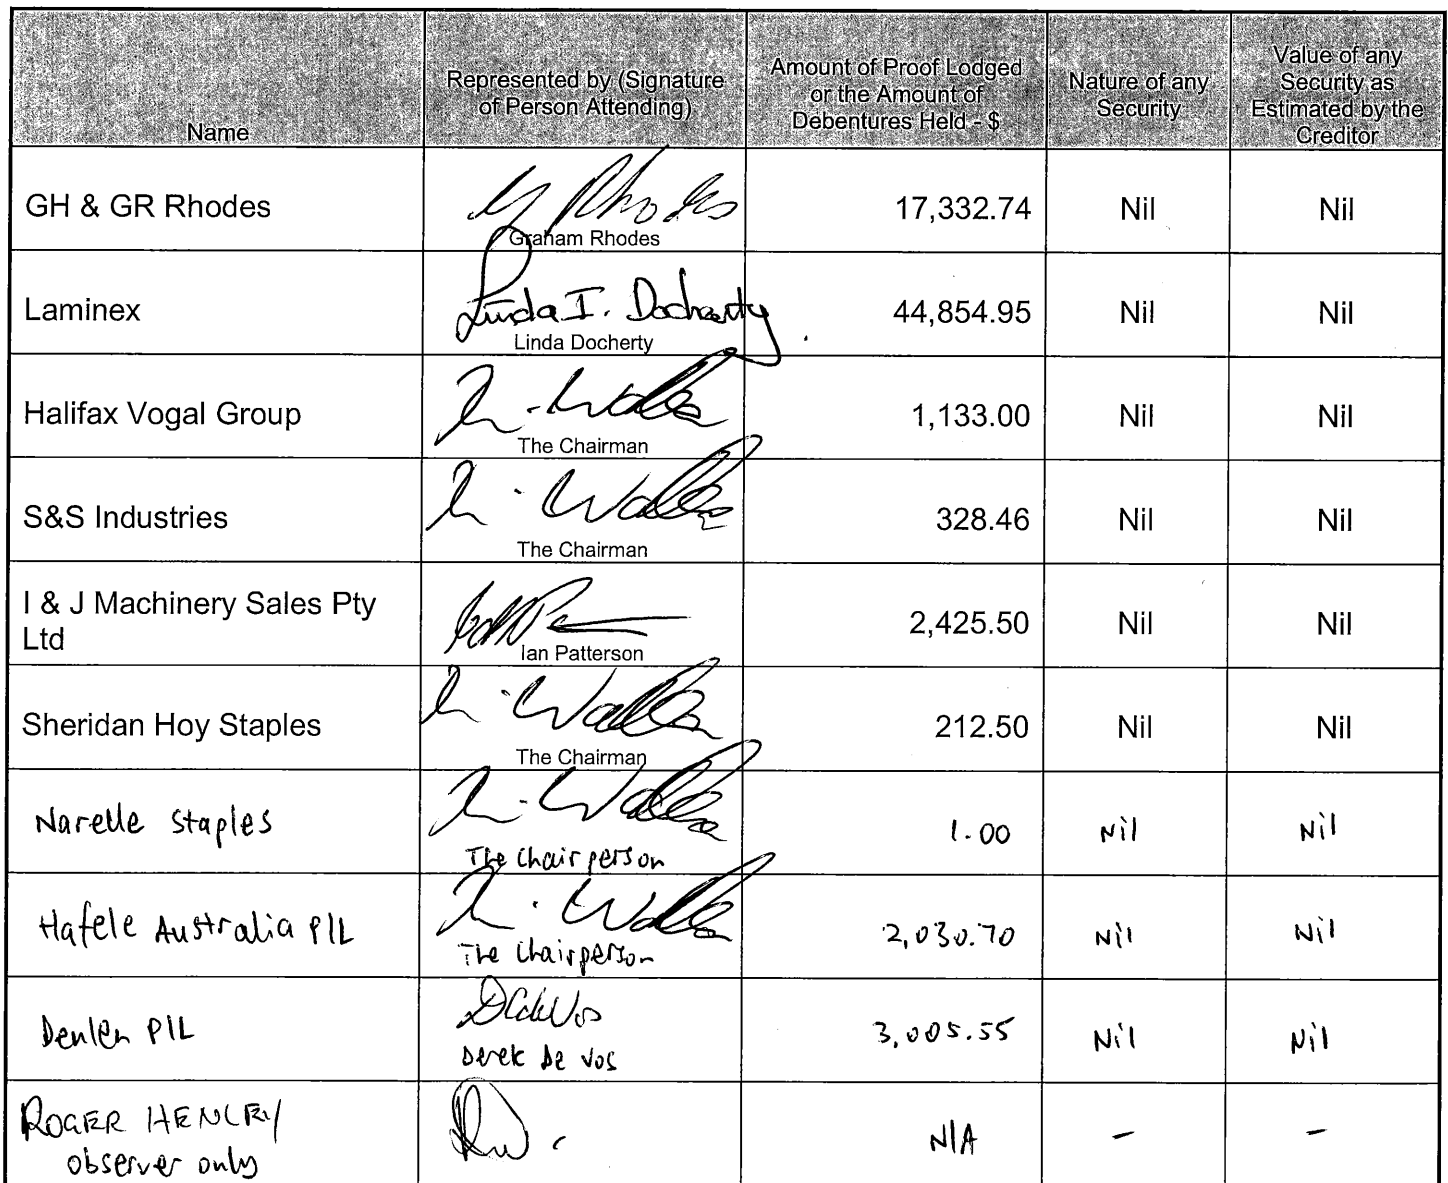 Name
Represented by (Signature
of Person Attending)
Amount of Proof Lodged
or the Amount of
Debentures Held - $
Nature of any
Security
Value of any
Security as
Estimated by the
Creditor
GH & GR Rhodes
G Rhodes
Graham Rhodes
17,332.74
Nil
Nil
Laminex
Linda I. Docherty
Linda Docherty
44,854.95
Nil
Nil
Halifax Vogal Group
The Chairman
1,133.00
Nil
Nil
S&S Industries
The Chairman
328.46
Nil
Nil
I & J Machinery Sales Pty
Ltd
Ian Patterson
2,425.50
Nil
Nil
Sheridan Hoy Staples
The Chairman
212.50
Nil
Nil
Narelle Staples
The Chairperson
1.00
Nil
Nil
Hafele Australia P/L
The Chairperson
2,030.70
Nil
Nil
P/L
Derek De Vos
3,005.55
Nil
Nil
ROGER HENLEY
observer only
N/A
-
-